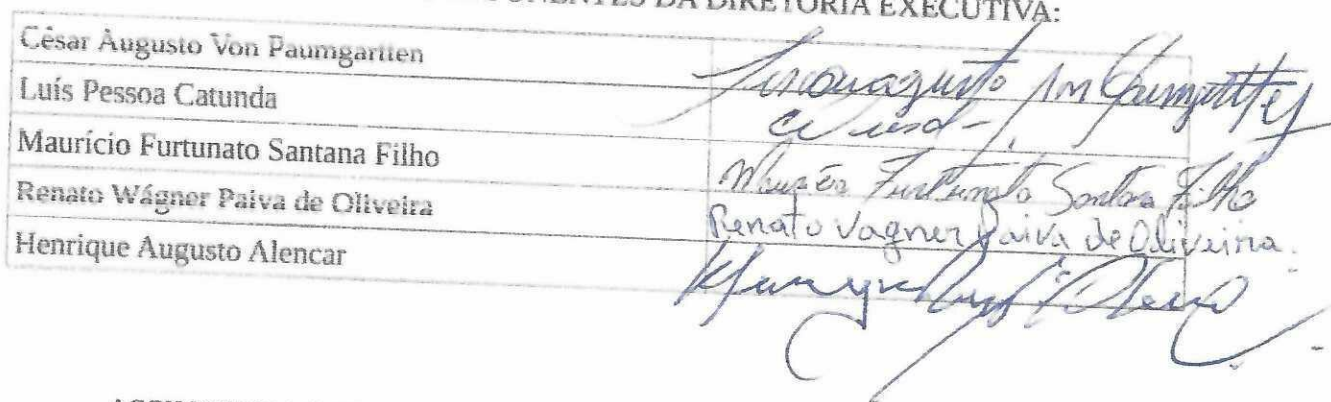 DA DIRETORIA EXECUTIVA:
César Augusto Von Paumgartten
Luís Pessoa Catunda
Maurício Furtunato Santana Filho Furtunato Santana Filho
Renato Wágner Paiva de Oliveira Renato Vagner Paiva de Oliveira.
Henrique Augusto Alencar